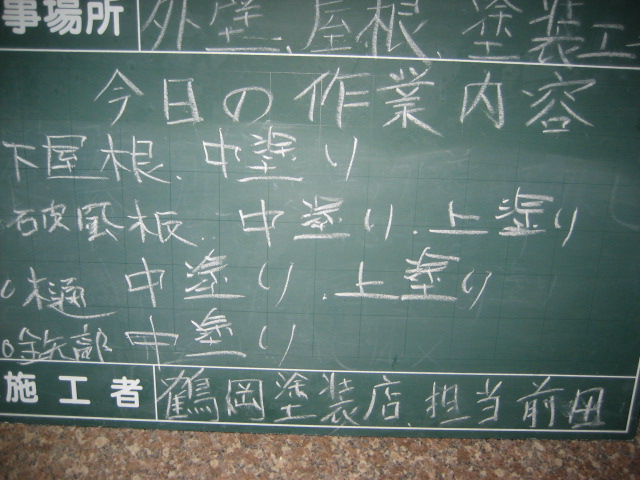 事場所 外壁、屋根、塗装工
今日の作業内容
下屋根、中塗り
破風板、中塗り、上塗り
樋 中塗り、上塗り
鉄部 中塗り
施工者 鶴岡塗装店、担当 前田